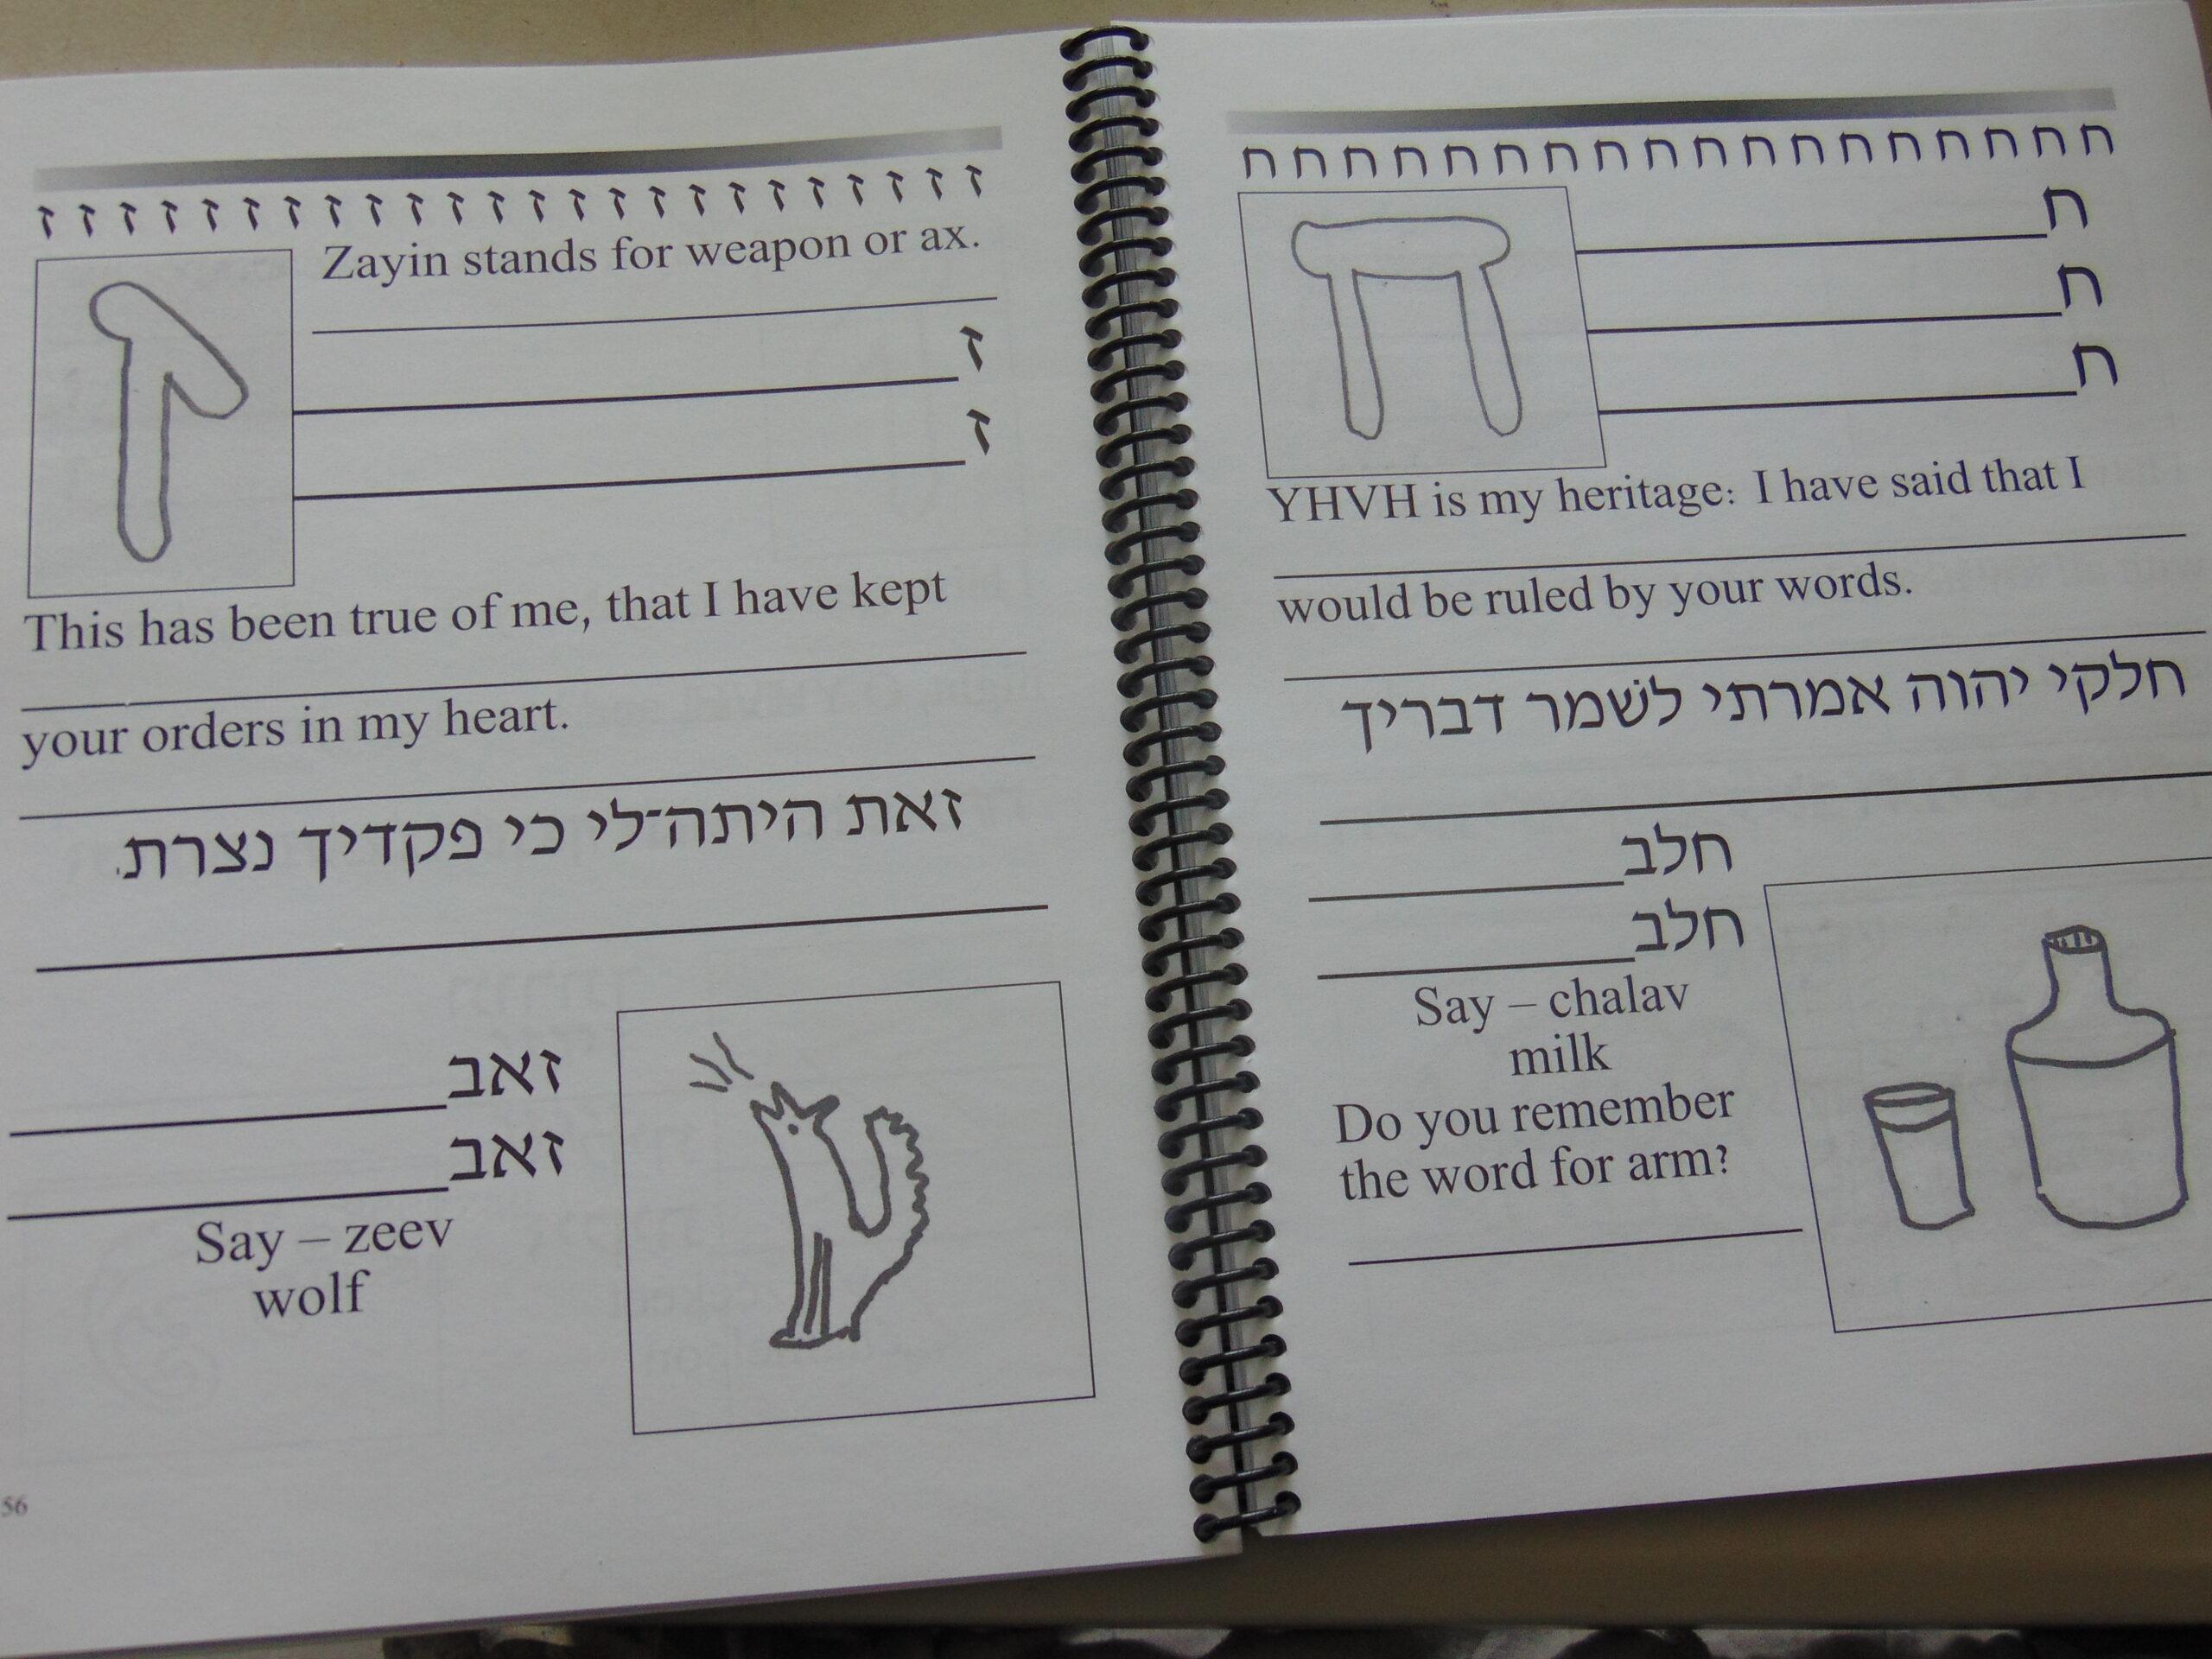 ז ז ז ז ז ז ז ז ז ז ז ז ז ז ז ז ז ז ז ז ז ז ז ז
Zayin stands for weapon or ax.
ז
ז
This has been true of me, that I have kept
your orders in my heart.
זאת היתה־לי כי פקדיך נצרת.
זאב
זאב
Say – zeev
wolf
56
ח ח ח ח ח ח ח ח ח ח ח ח ח ח ח ח ח ח
ח
ח
ח
YHVH is my heritage: I have said that I
would be ruled by your words.
חלקי יהוה אמרתי לשׁמר דבריך
חלב
חלב
Say – chalav
milk
Do you remember
the word for arm?